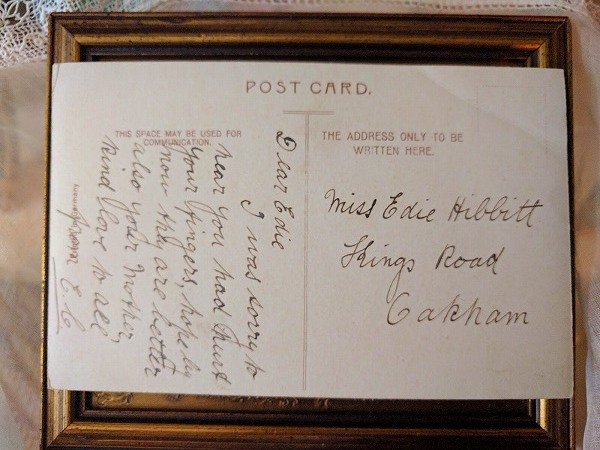 POST CARD.
THIS SPACE MAY BE USED FOR
COMMUNICATION.
THE ADDRESS ONLY TO BE
WRITTEN HERE.
Dear Edie
I was sorry to
hear you had hurt
your fingers, hope by
now they are better
also your Mother,
Kind love to all
from E. C
Miss Edie Hibbitt
Kings Road
Oakham